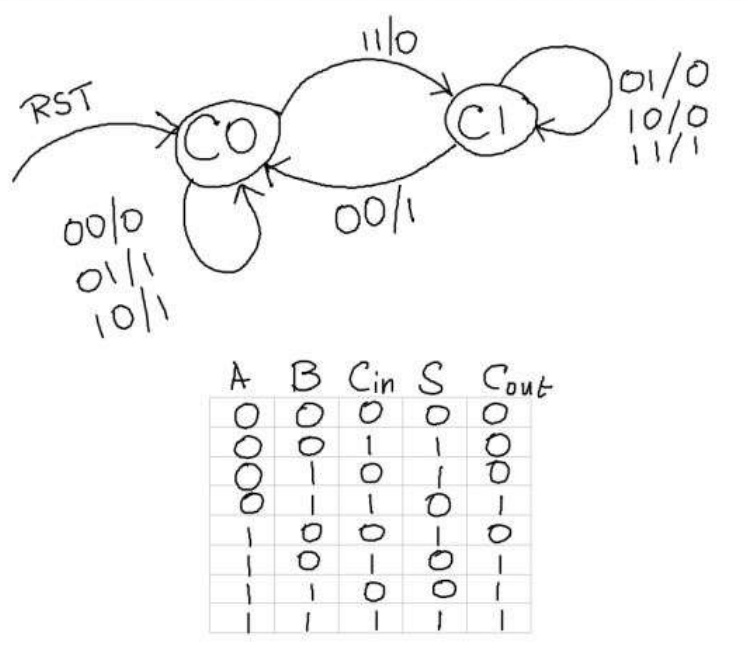 11/0
RST
C0
C1
01/0
10/0
11/1
00/1
00/0
01/1
10/1
A B Cin S Cout
0 0 0 0 0
0 0 1 1 0
0 1 0 1 0
0 1 1 0 1
1 0 0 1 0
1 0 1 0 1
1 1 0 0 1
1 1 1 1 1